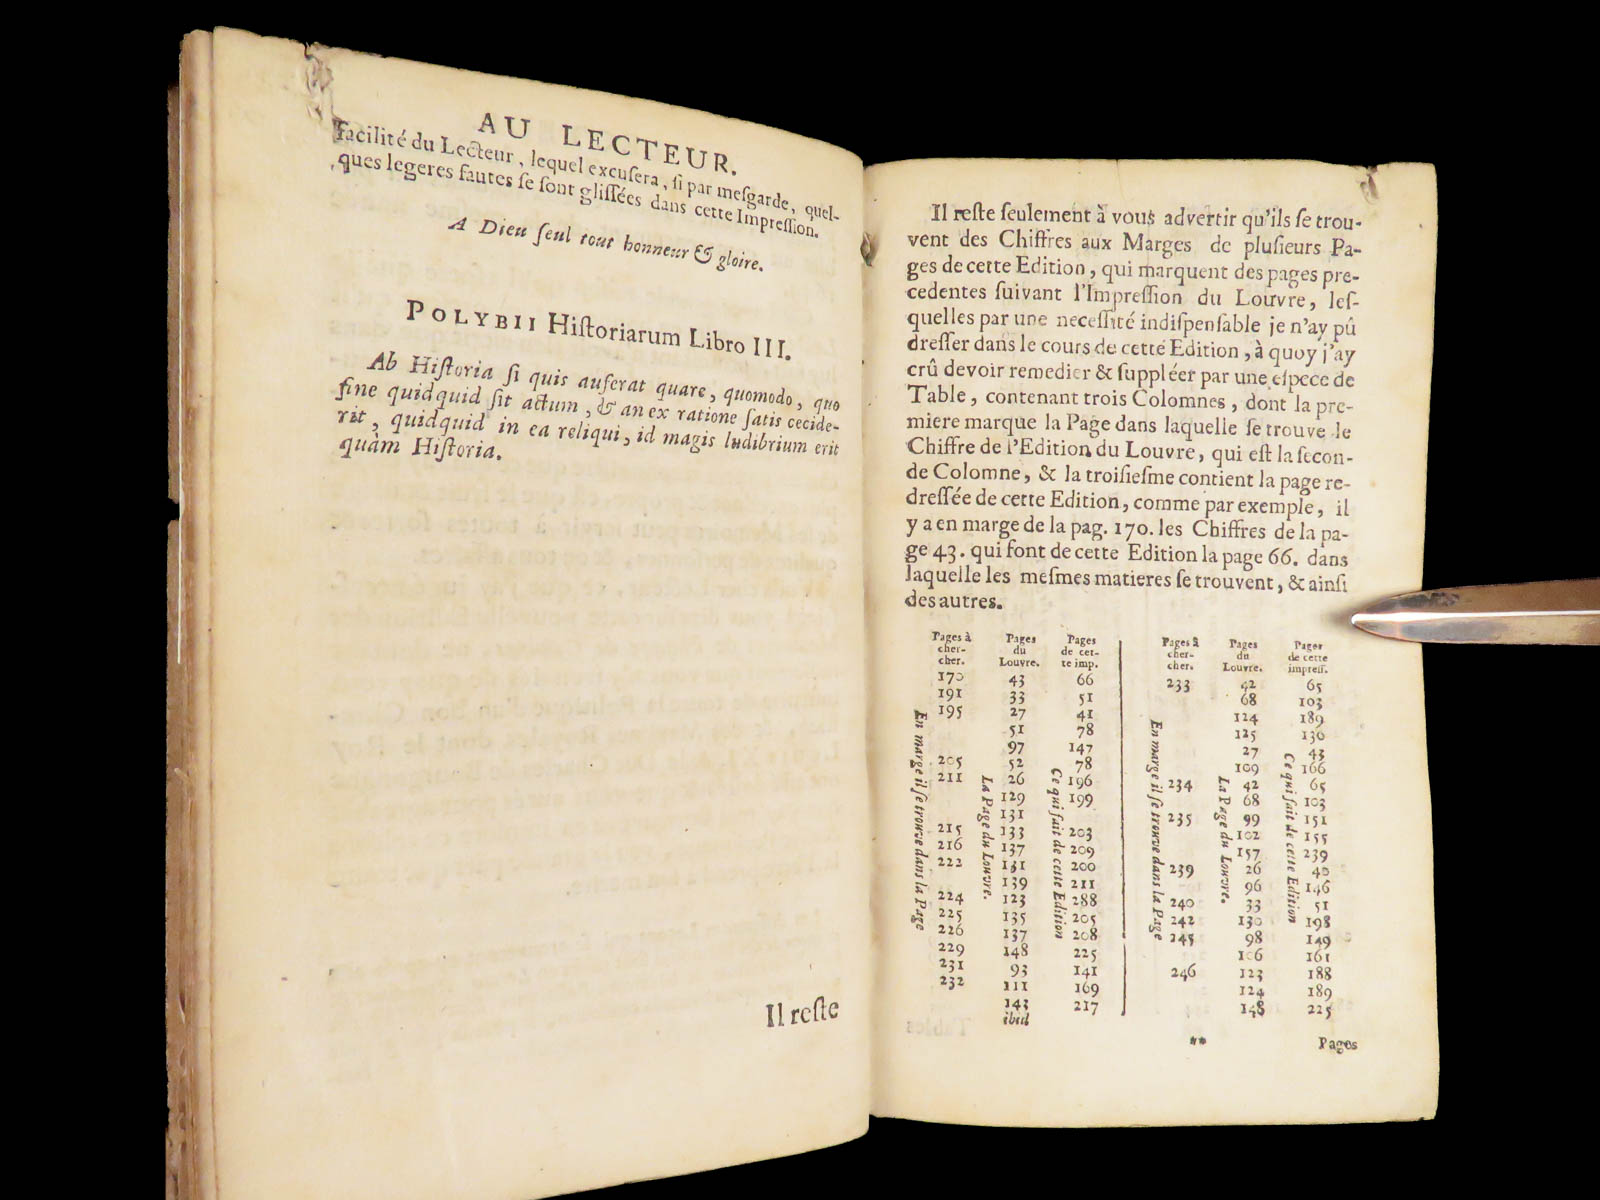 AU LECTEUR.
facilité du Lecteur, lequel excusera, si par mesgarde, quel-
ques legeres fautes se sont glissées dans cette Impression.
A Dieu seul tout honneur & gloire.
POLYBII Historiarum Libro III.
Ab Historia si quis auferat quare, quomodo, quo
fine quidquid sit actum, & an ex ratione satis cecide-
rit, quidquid in ea reliqui, id magis ludibrium erit
quàm Historia.
Il reste
Il reste seulement à vous advertir qu'ils se trou-
vent des Chiffres aux Marges de plusieurs Pa-
ges de cette Edition, qui marquent des pages pre-
cedentes suivant l'Impression du Louvre, les-
quelles par une necessité indispensable je n'ay pû
dresser dans le cours de cette Edition, à quoy j'ay
crû devoir remedier & suppléer par une espece de
Table, contenant trois Colomnes, dont la pre-
miere marque la Page dans laquelle se trouve le
Chiffre de l'Edition du Louvre, qui est la secon-
de Colomne, & la troisiesme contient la page re-
dressée de cette Edition, comme par exemple, il
y a en marge de la pag. 170. les Chiffres de la pa-
ge 43. qui font de cette Edition la page 66. dans
laquelle les mesmes matieres se trouvent, & ainsi
des autres.
Pages à Pages Pages
cher- du de cet-
cher. Louvre. te imp.
170 43 66
191 33 51
195 27 41
51 78
97 147
205 52 78
211 26 196
129 199
131
215 133 203
216 137 209
222 131 200
139 211
224 123 288
225 135 205
226 137 208
229 148 225
231 93 141
232 111 169
143 217
ibid
En marge il se trouve dans la Page
La Page du Louvre.
Ce qui fait de cette Edition
Pages à Pages Pages
cher- du de cette
cher. Louvre. impress.
233 42 65
68 103
124 189
125 130
27 43
109 166
234 42 65
68 103
235 99 151
102 155
157 239
239 26 40
96 146
240 33 51
242 130 198
245 98 149
106 161
246 123 188
124 189
148 225
En marge il se trouve dans la Page
La Page du Louvre.
Ce qui fait de cette Edition
** Pages